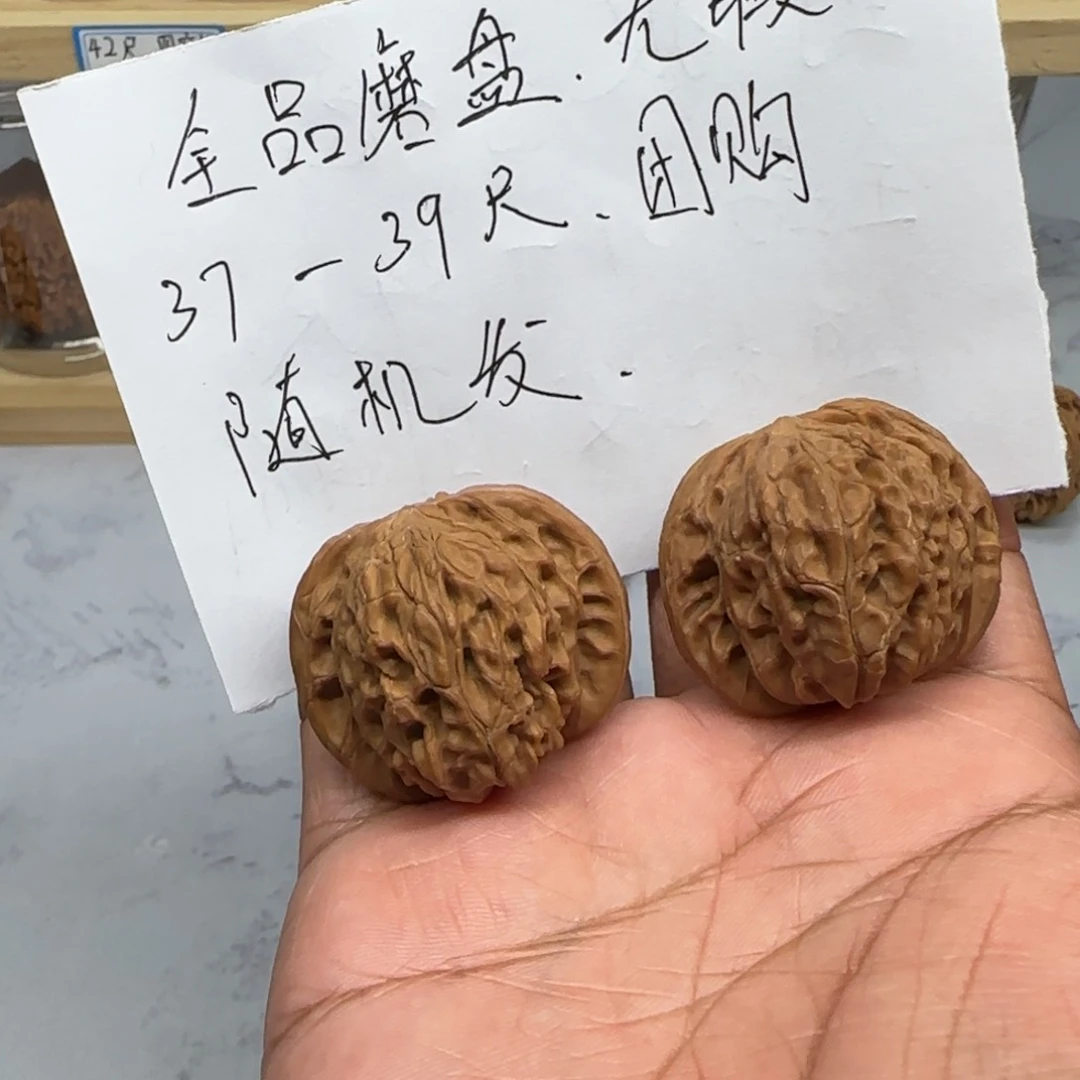 42尺
全品磨盘.无
37-39尺.团购
随机发.